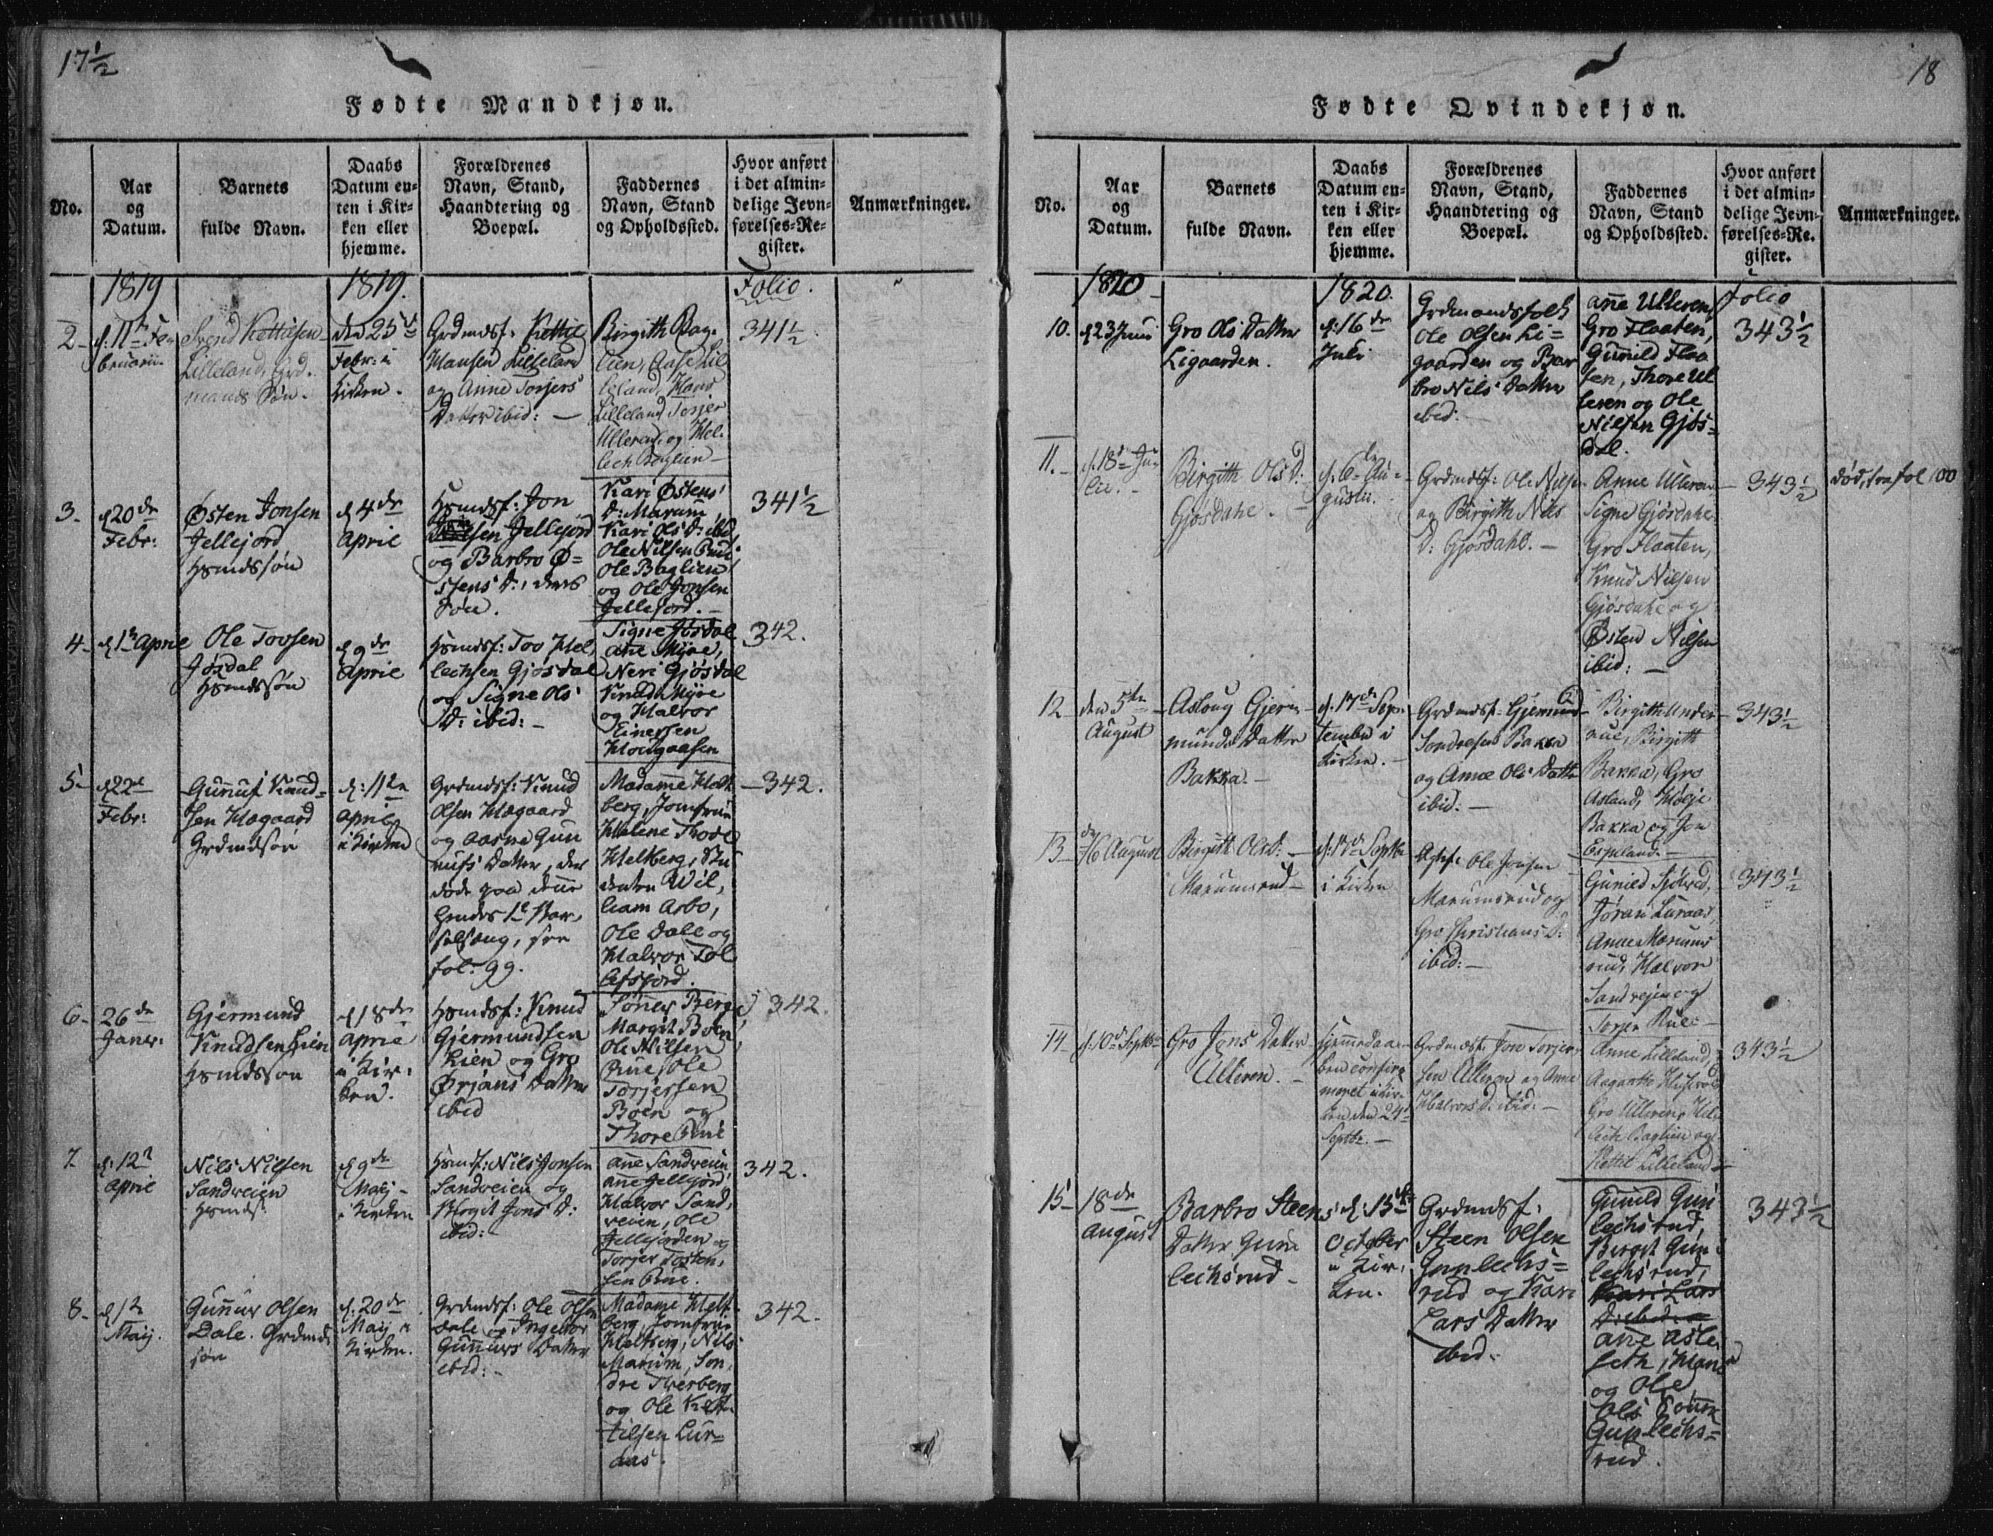 17½
Fødte Mandkjøn.
No.
Aar
og
Datum.
Barnets
fulde Navn.
Daabs
Datum en-
ten i Kir-
ken eller
hjemme.
Forældrenes
Navn, Stand,
Haandtering og
Boepæl.
Faddernes
Navn, Stand
og Opholdssted.
Hvor anført
i det almin-
delige Jevn-
førelses-Re-
gister.
Anmærkninger.
1819
1819.
Folio.
2
d: 11te Fe-
bruarii
Svend Kettilsen
Lilleland, Grd-
mands Søn.
den 25de
Febr: i
Kirken.
Grdmdsf: Kettil
Hansen Lilleland
og Anne Torjers
Datter ibid: —
Birgith Bag-
lien, Aase Lil-
leland, Hans
Lilleland, Torjer
Ulleren, og Hel-
lech Baglien —
341½
3.
d 20de
Febr:
Østen Jonsen
Jellejord
Hsmdssøn
d 4de
April
Hsmdsf: Jon
Jellejord
og Barbro Ø-
stens D:, deres
Kari Østens
D: Marum,
Kari Ols D: ibid
Ole Nilsen
Ole Baglien
og Ole Jonsen
Jellejord. —
341½
4.
d 1te April
Ole Tovsen
Jøsdal
Hsmdssøn
d 9de
April
Hsmdsf: Tov Hel-
lechsen Gjøsdal
og Signe Ols
D: ibid: —
Signe Jøsdal
Ane Myre,
Neri Gjøsdal
Knud Myre
og Halvor
Einersen
342.
5
d 22de
Febr:
Gunuf Knud-
sen Hægaard
Grdmdssøn
d: 11te
April
i Kirken
Grdmdsf: Knud
Olsen Hægaard
og Aasne Gun
nufs Datter, der
døde paa denne
hendes 1te Bar-
selseng, see
fol: 99.
Madamme Helt
berg, Jomfrue
Helene Thode
Heltberg, Stu
denten Wil,
liam Arbo,
Ole Dale og
Halvor
342.
6
26de
Janr:
Gjermund
Knudsen Lien
Hsmdssøn
d 18de
April
i Kir-
ken.
Hsmdsf: Knud
Gjermundsen
Lien og Gro
Ørjans Datter
ibid
Berge
Margit Boen
Ole Nilsen
Ole
Torjersen
Boen og
Thore
342.
7.
d: 12te
April
Nils Nilsen
Sandveien
Hsmds:
d 9de
Maij
i Kirken
Hsmdsf: Nils Jonsen
Sandveien og
Birgit Jons D:
ibid: —
Ane Sandveien
Ane Jellejord,
Halvor Sand,
veien, Ole
Jellejorden og
Torjer Tosten,
sen
342.
8.
d 1te
Maij.
Gunnur Olsen
Dale. Grdmds
søn
d. 20de
Maij i
Kirken.
Grdmdsf: Ole Olsen
Dale og Ingebor
Gunnurs Datter
ibid: —
Madame Helt-
berg, Jomfrue
Heltberg, Nils
Marum, Son,
dre Tverberg
og Ole Ket
tilsen Lur-
aas.
342.
18
Fødte Qvindekjøn.
No.
Aar
og
Datum.
Barnets
fulde Navn.
Daabs
Datum en-
ten i Kir-
ken eller
hjemme.
Forældrenes
Navn, Stand,
Haandtering og
Boepæl.
Faddernes
Navn, Stand
og Opholdssted.
Hvor anført
i det almin-
delige Jevn-
førelses-Re-
gister.
Anmærkninger.
1820
1820.
Folio
10.
d 23 Juni
Gro Ols Datter
Ligaarden.
d: 16de
Juli
Grdmandsfolk
Ole Olsen Li-
gaarden og Bar
bro Nils Datter
ibid: —
Ane Ulleren,
Gro Flaaten,
Gunild Flaa
ten, Thore Ul
leren og Ole
Nilsen Gjøs-
dal.
343½
11. —
d. 18de Ju-
lii. —
Birgith Ols D:
Gjøsdahl. —
d: 6te Au-
gustii.
Grdmdsf: Ole Nilsen
og Birgith Nils
D: Gjøsdahl. —
Anne Ulleren
Signe Gjøsdahl
Gro Flaaten,
Knud Nilsen
Gjøsdahl og
Østen Nilsen
ibid: —
343½
død, see fol 100
12
den 5te
August
Asloug Gjer-
munds Datter
Bakka. —
d. 17de Sep-
tember i
Kirken. —
Grdmdsf: Gjermund
Sondresen Bakka
og Anne Ols Datter
ibid: —
Birgith
Birgith
Bakka, Gro
Asland,
Bakka og Jon
Espeland. —
343½
13
16 August
Birgith Ols D: —
Marumsrud —
d: 17de Septbr
i Kirken
Ole Jonsen
Marumsrud og
Gro Christians D:
ibid: —
Gunild
Jøran Luraas,
Anne Marums
rud, Halvor
Sandvejen og
Torjer
343½
14
d: 10de Septbr
Gro Jons Datter
Ulleren. —
Hjemmedaa-
ben confir-
meret i Kir-
ken den 24de
Septbr. —
Grdmdsf: Jon Torjer-
sen Ulleren og Anne
Halvors D: ibid: —
Anne Lilleland,
Gro Ulleren, Hel-
lech Baglien og
Kettil Lilleland —
343½
15
18de
August
Barbro Steens
Datter Gun
lechsrud —
d. 15de
October
i Kir-
ken.
Grdmdsf:
Steen Olsen
Gunlechs-
rud og Kari
Lars Datter
ibid. —
Gunild Gun
lechsrud,
Birgit Gun
lechsrud,
Kari Lars
D: ibid: —
Ane
og Ole
Ols Sønn
Gunlechs-
rud.
343½